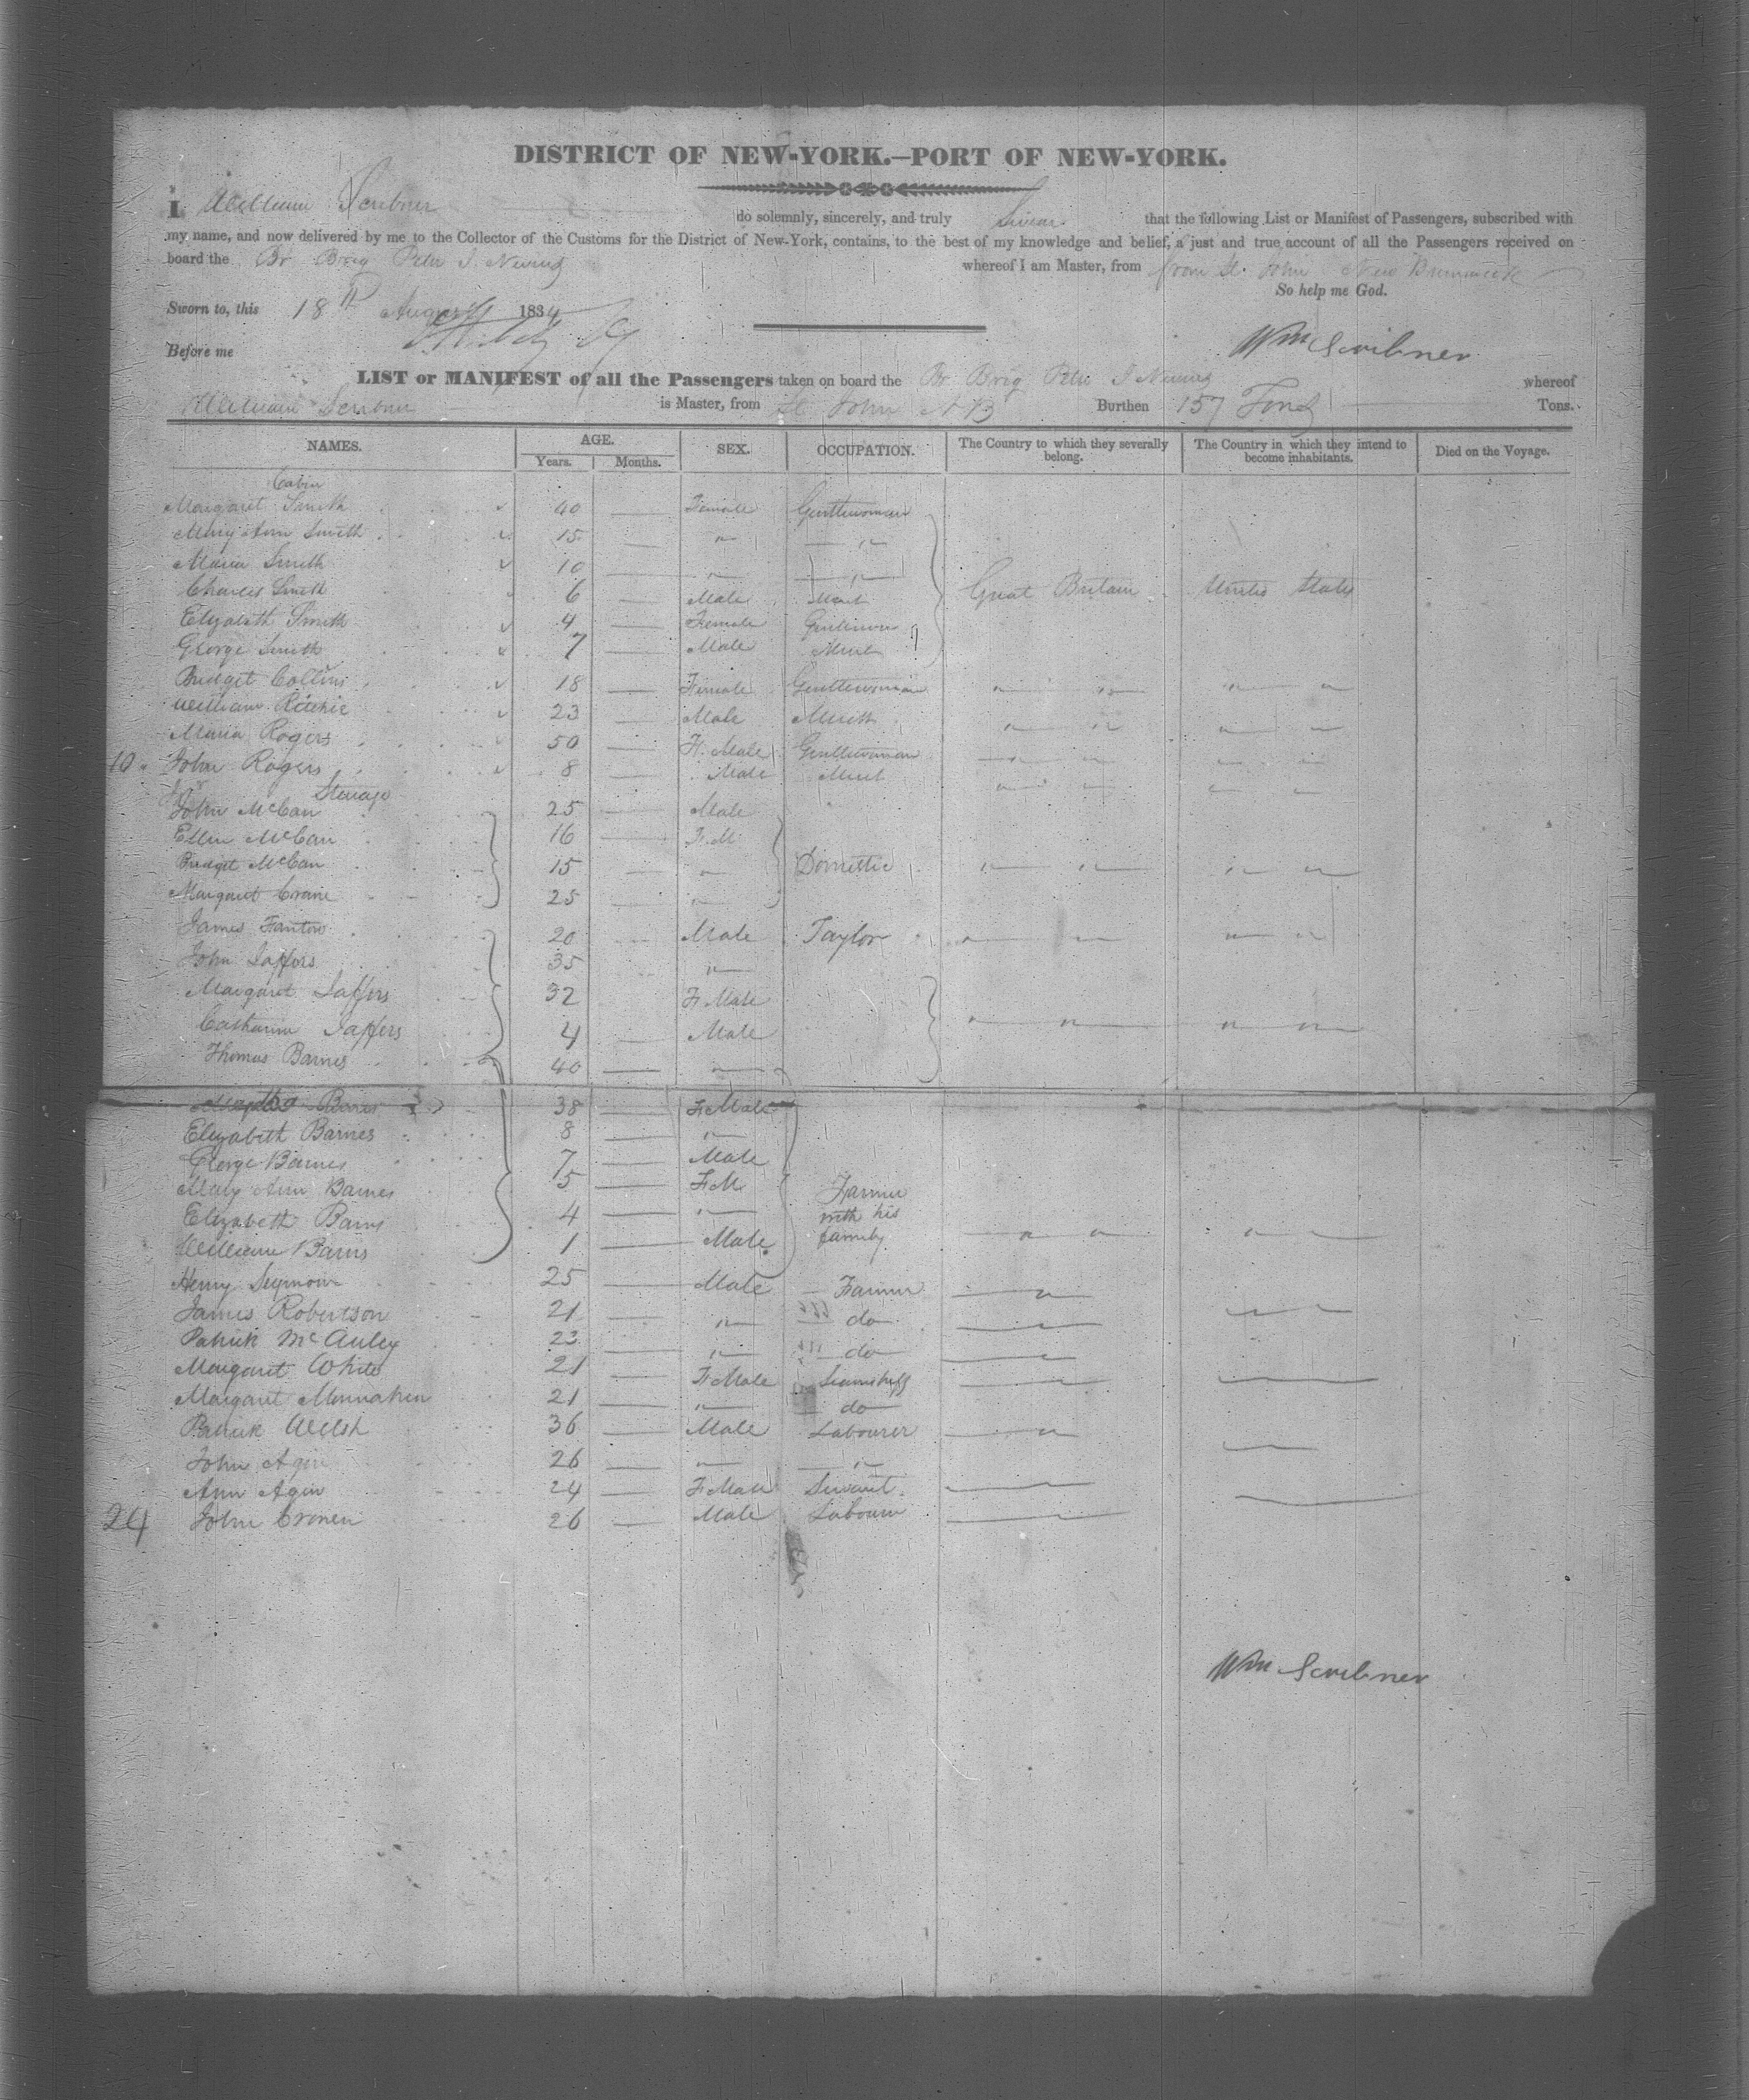 DISTRICT OF NEW-YORK.—PORT OF NEW-YORK.
I William Scribner do solemnly, sincerely, and truly Swear that the following List or Manifest of Passengers, subscribed with
my name, and now delivered by me to the Collector of the Customs for the District of New-York, contains, to the best of my knowledge and belief, a just and true account of all the Passengers received on
board the Br Brig Peter I Nevius whereof I am Master, from from St. John New Brunswick
So help me God.
Sworn to, this 18th August 1834
Before me
Wm Scribner
LIST or MANIFEST of all the Passengers taken on board the Br Brig Peter I Nevius whereof
William Scribner is Master, from St John N B Burthen 157 Tons Tons.
NAMES. AGE. SEX. OCCUPATION. The Country to which they severally belong. The Country in which they intend to become inhabitants. Died on the Voyage.
Years. Months.
Cabin
Margaret Smith 40 Female Gentlewoman
Mary Ann Smith 15 " "
Maria Smith 10 " "
Charles Smith 6 Male Great Britain United States
Elizabeth Smith 4 Female
George Smith 7 Male
Bridget Collins 18 Female Gentlewoman " " " "
William Ritchie 23 Male " " " "
Maria Rogers 50 F. Male Gentlewoman " " " "
10 John Rogers 8 Male " " " "
Steerage
John McCan 25 Male
Ellen McCan 16 F. M
Bridget McCan 15 " Domestic " " " "
Margaret Crane 25 "
James Fanton 20 Male Taylor " " " "
John Jaffers 35 "
Margaret Jaffers 32 F Male
Catharine Jaffers 4 Male " " " "
Thomas Barnes 40 "
Barnes 38 F Male
Elizabeth Barnes 8 "
George Barnes 7 Male
Mary Ann Barnes 5 F.M Farmer
Elizabeth Barns 4 " with his
William Barns 1 Male family " " " "
Henry Seymour 25 Male Farmer "
James Robertson 21 " do
Patrick McAuley 23 " do
Margaret White 21 F Male
Margaret Monnahan 21 " do
Patrick Welsh 36 Male Labourer "
John Agin 26 " "
Ann Agin 24 F Male Servant
24 John Cronen 26 Male Labourer
Wm Scribner